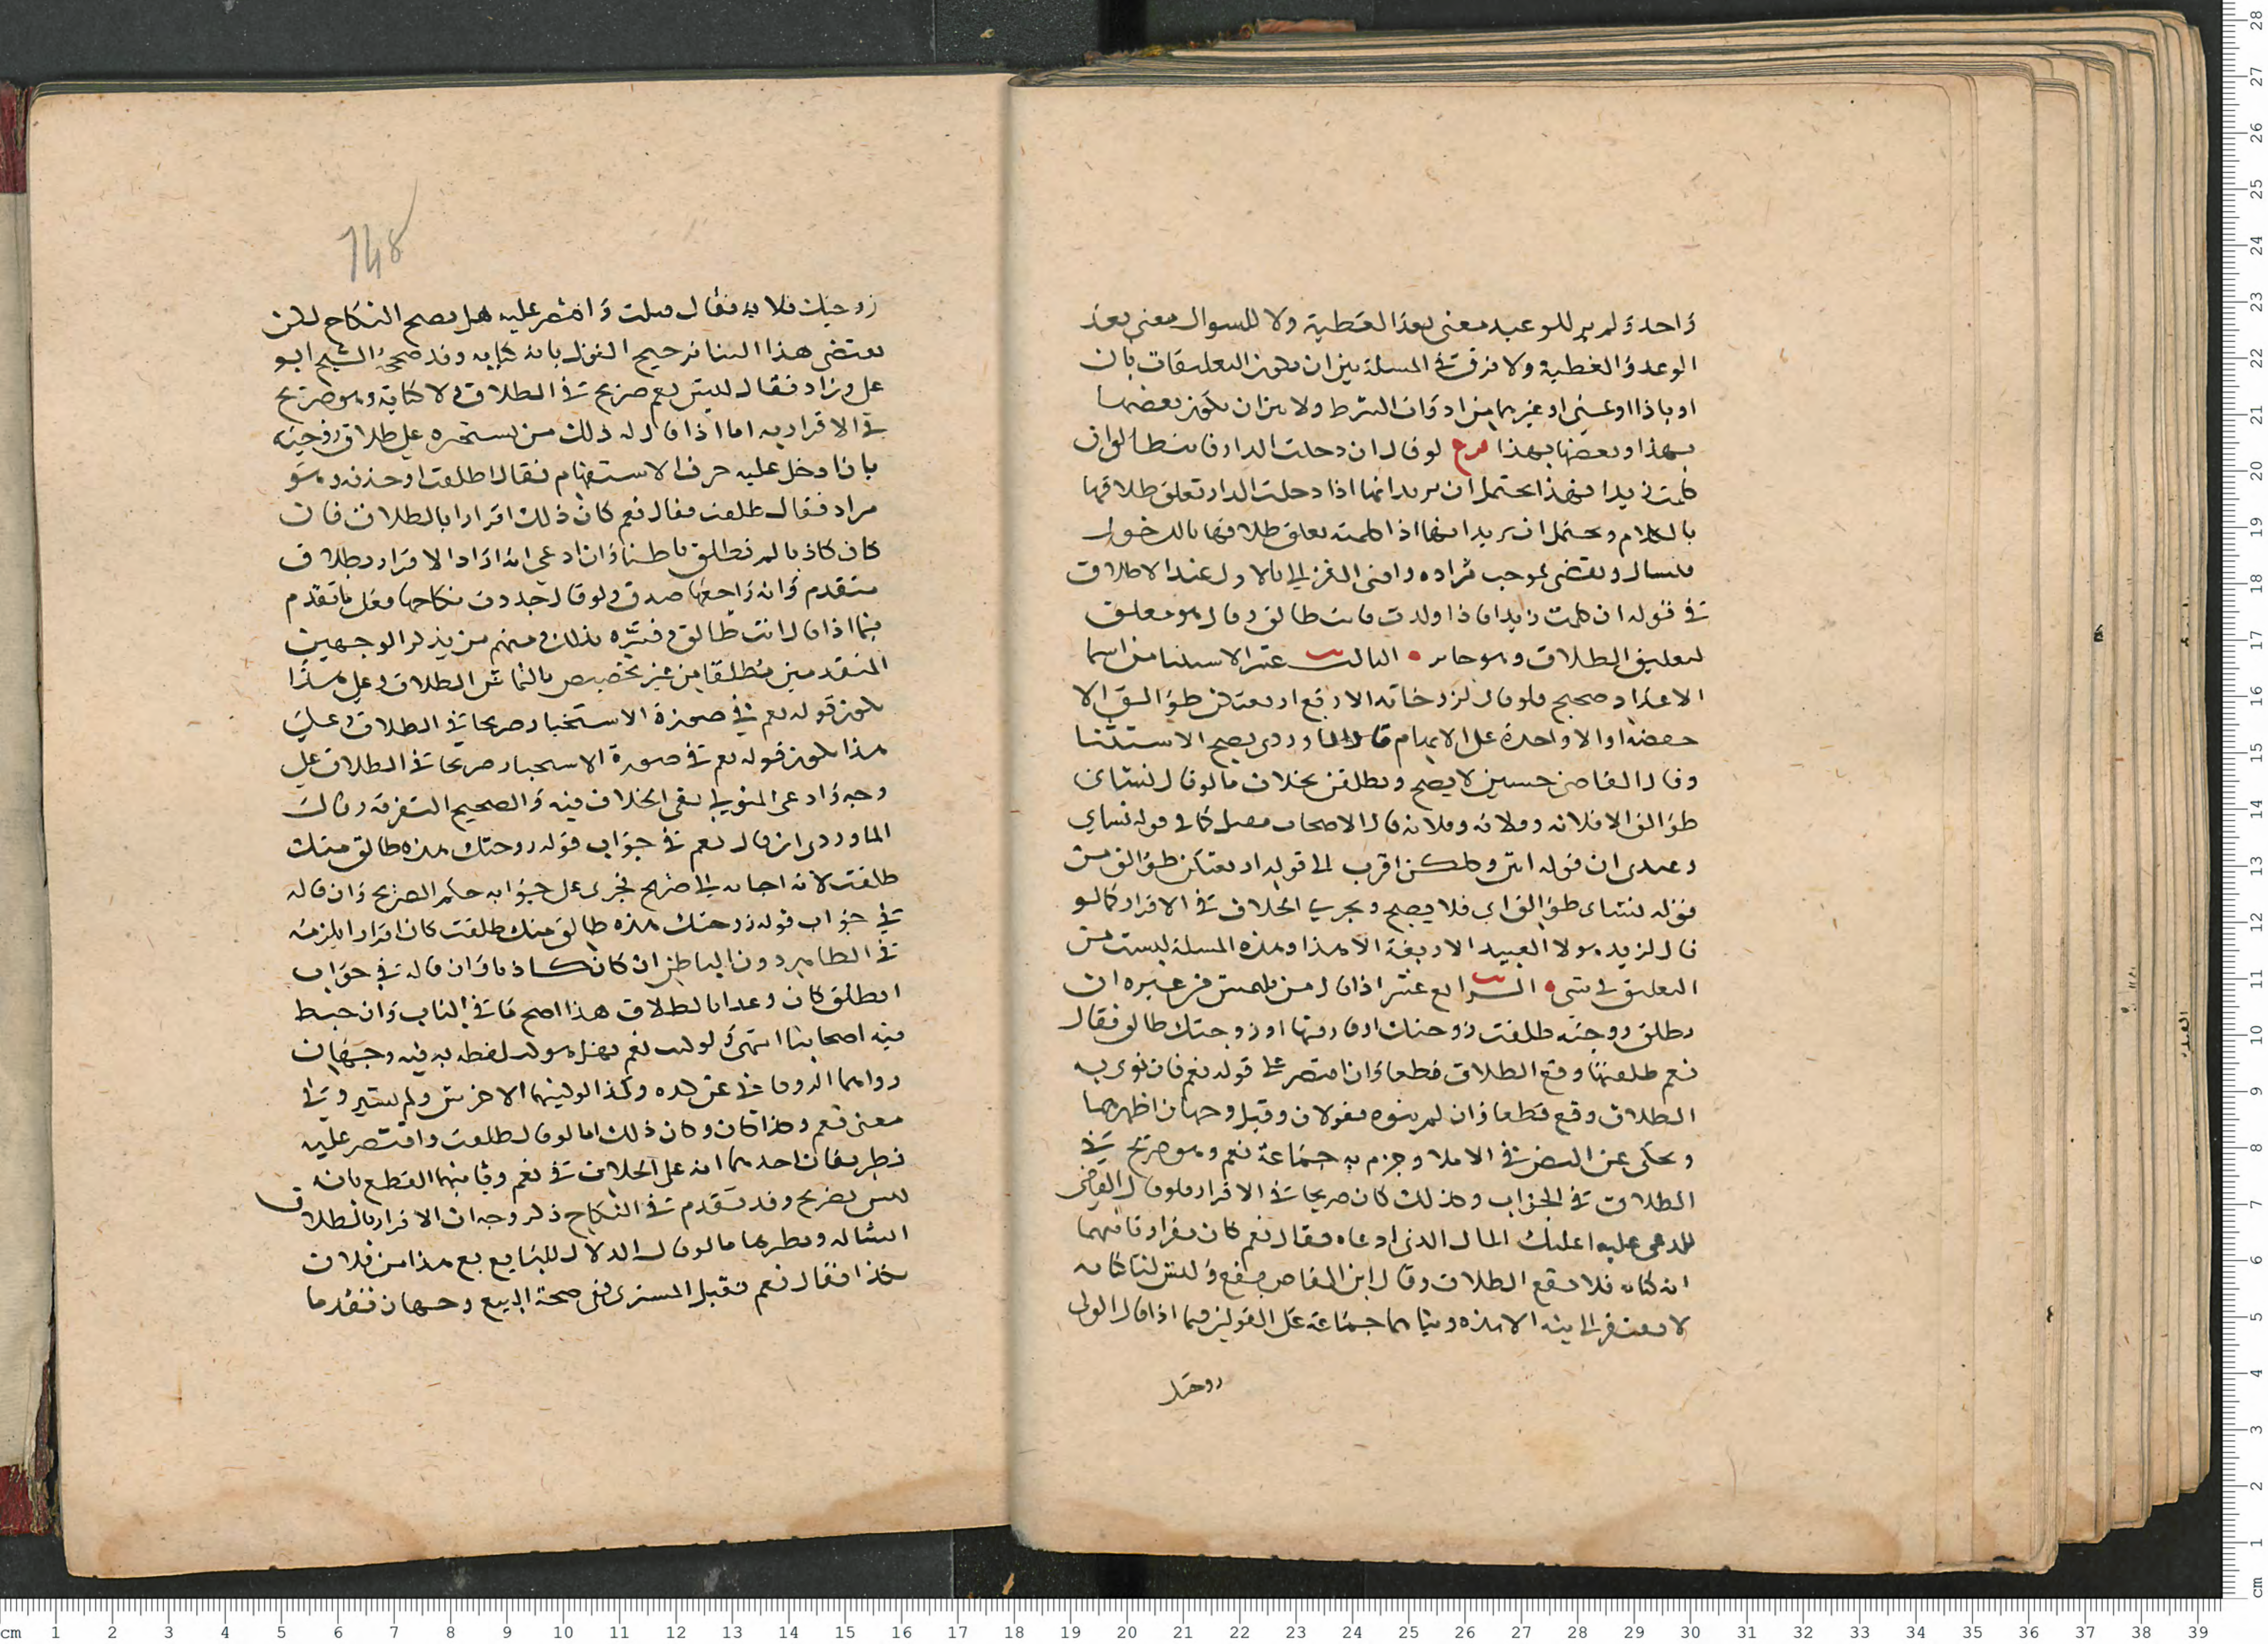 واحد ولم ير للوعيد معنى بعد العطية ولا للسوال معنى بعد
الوعد والعطية ولا فرق في المسلة بين ان يكون التعليقات بان
او باذا او بمتى او غيرها من ادوات الشرط ولا بين ان يكون بعضها
بهذا وبعضها بهذا فرع لو قال ان دخلت الدار فانت طالق ان
كلمت زيدا فهذا يحتمل ان يريد انها اذا دخلت الدار تعلق طلاقها
بالكلام ويحتمل ان يريد انها اذا كلمته تعلق طلاقها بالدخول
فيسال ويقضى بموجب مراده وافتى الغزالي بالاول عند الاطلاق
في قوله ان كلمت زيدا فاذا ولدت فانت طالق وقال هو معلق
لتعليق الطلاق وهو جايز الثالث عشر الاستثنا من اسما
الاعداد صحيح فلو قال لزوجاته الاربع اربعتكن طوالق الا
حفصة او الا واحدة على الابهام قال الماوردي يصح الاستثنا
وقال القاضي حسين لا يصح ويطلقن بخلاف ما لو قال نسائ
طوالق الا فلانة وفلانة وفلانة قال الاصحاب كما في قوله نساي
وعندي ان قوله انتن وكلكن اقرب الى قوله اربعتكن طوالق من
قوله نساى طوالق اي فلا يصح ويجري الخلاف في الاقرار كما لو
قال لزيد هولا العبيد الاربعة الا هذا وهذه المسلة ليست من
التعليق في شي الرابع عشر اذا قال من يلتمس من غيره ان
يطلق زوجته طلقت زوجتك او فارقتها او زوجتك طالق فقال
نعم طلقتها وقع الطلاق قطعا وان اقتصر على قوله نعم فان نوى به
الطلاق وقع قطعا وان لم ينوه فقولان وقيل وجهان اظهرهما
وحكى عن النص في الاملا وجزم به جماعة نعم وهو صريح في
الطلاق في الجواب وكذلك كان صريحا في الاقرار فلو قال القاضي
للمدعى عليه اعليك المال الذي ادعاه فقال نعم كان مقرا وثانيهما
انه كناية فلا يقع الطلاق وقال ابن القاص يقع وليس لنا كناية
لا يفتقر الى نية الا هذه وبناهما جماعة على القولين فيما اذا قال الولي
زوجتك
148
زوجتك فلانة فقال قبلت واقتصر عليه هل يصح النكاح لكن
يقتضى هذا البنا ترجيح القول بانه كناية وقد صححه الشيخ ابو
علي وزاد فقال ليس نعم صريح في الطلاق ولا كناية وهو صريح
في الاقرار به اما اذا قال له ذلك من يستخبره على طلاق زوجته
بان ادخل عليه حرف الاستفهام فقال اطلقت او حذفه وهو
مراد فقال طلقت فقال نعم كان ذلك اقرارا بالطلاق فان
كان كاذبا لم تطلق باطنا وان ادعى انه اراد الاقرار بطلاق
متقدم وانه راجعها صدق ولو قال جددت نكاحها فعلى ما تقدم
فيما اذا قال انت طالق وفسره بذلك ومنهم من يذكر الوجهين
المتقدمين مطلقا من غير تخصيص بالتماس الطلاق وعلى هذا
يكون قوله نعم في صورة الاستخبار صريحا في الطلاق وعلى
هذا يكون قوله نعم في صورة الاستخبار صريحا في الطلاق على
وجه وادعى المتولي نفى الخلاف فيه والصحيح التفرقة وقال
الماوردي ان قال نعم في جواب قوله زوجتك هذه طالق منك
طلقت لانه اجابه الى صريح فجرى على جوابه حكم الصريح وان قاله
في جواب قوله زوجتك هذه طالق منك طلقت كان اقرارا يلزمه
في الظاهر دون الباطن ان كان كاذبا وان قاله في جواب
اتطلق كان وعدا بالطلاق هذا اصح ما في الباب وان خبط
فيه اصحابنا انتهى ولو كتب نعم فهل هو كلفظه به فيه وجهان
رواهما الروياني عن جده وكذا لو افهمها الاخرس ولم يشر وفي
معنى نعم وكان ذلك اما لو قال طلقت واقتصر عليه
فطريقان احدهما انه على الخلاف في نعم وثانيهما القطع بانه
ليس بصريح وقد تقدم في النكاح ذكر وجه ان الاقرار بالطلاق
انشا له ونظيرها ما لو قال الدلال للبايع بع هذا من فلان
بكذا فقال نعم فقبل المشترى ففي صحة البيع وجهان تقدما